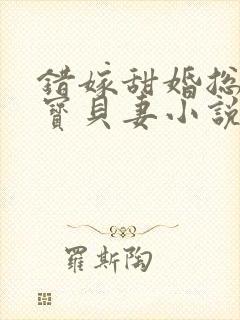 错嫁甜婚总
寶貝妻小說
羅斯陶